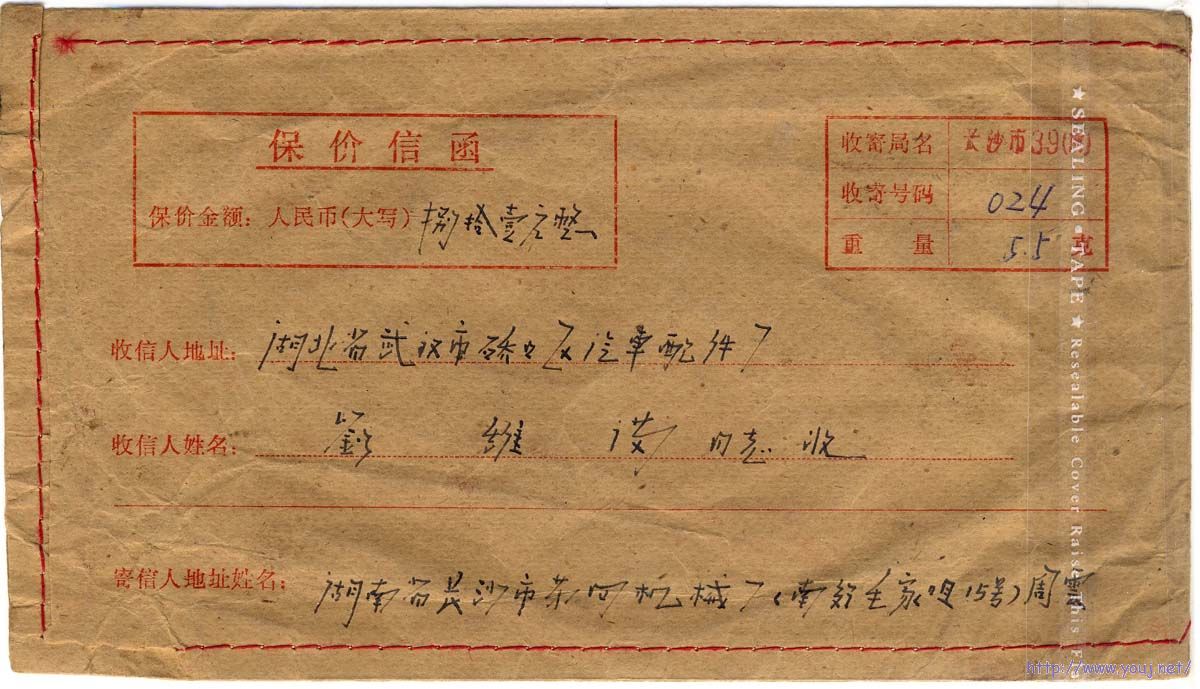 保价信函
保价金额：人民币（大写）捌拾壹元整
收寄局名 长沙市39(支)
收寄号码 024
重量 5.5 克
收信人地址： 湖北省武汉市硚口区汽車配件厂
收信人姓名： 同志 收
寄信人地址姓名： 湖南省長沙市 机械厂(南 王家 15号)周
★SEALING●TAPE★Resealable Cover Raise This F
http://www.youj.net/